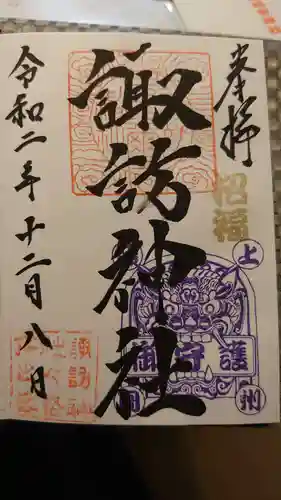 奉拝
招福
諏訪神社
上
州
御守護
令和二年十二月八日